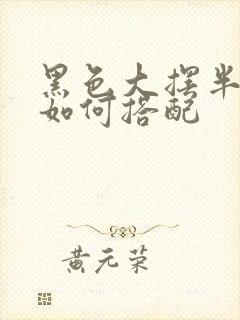 黑色大摆半
如何搭配
黄元荣